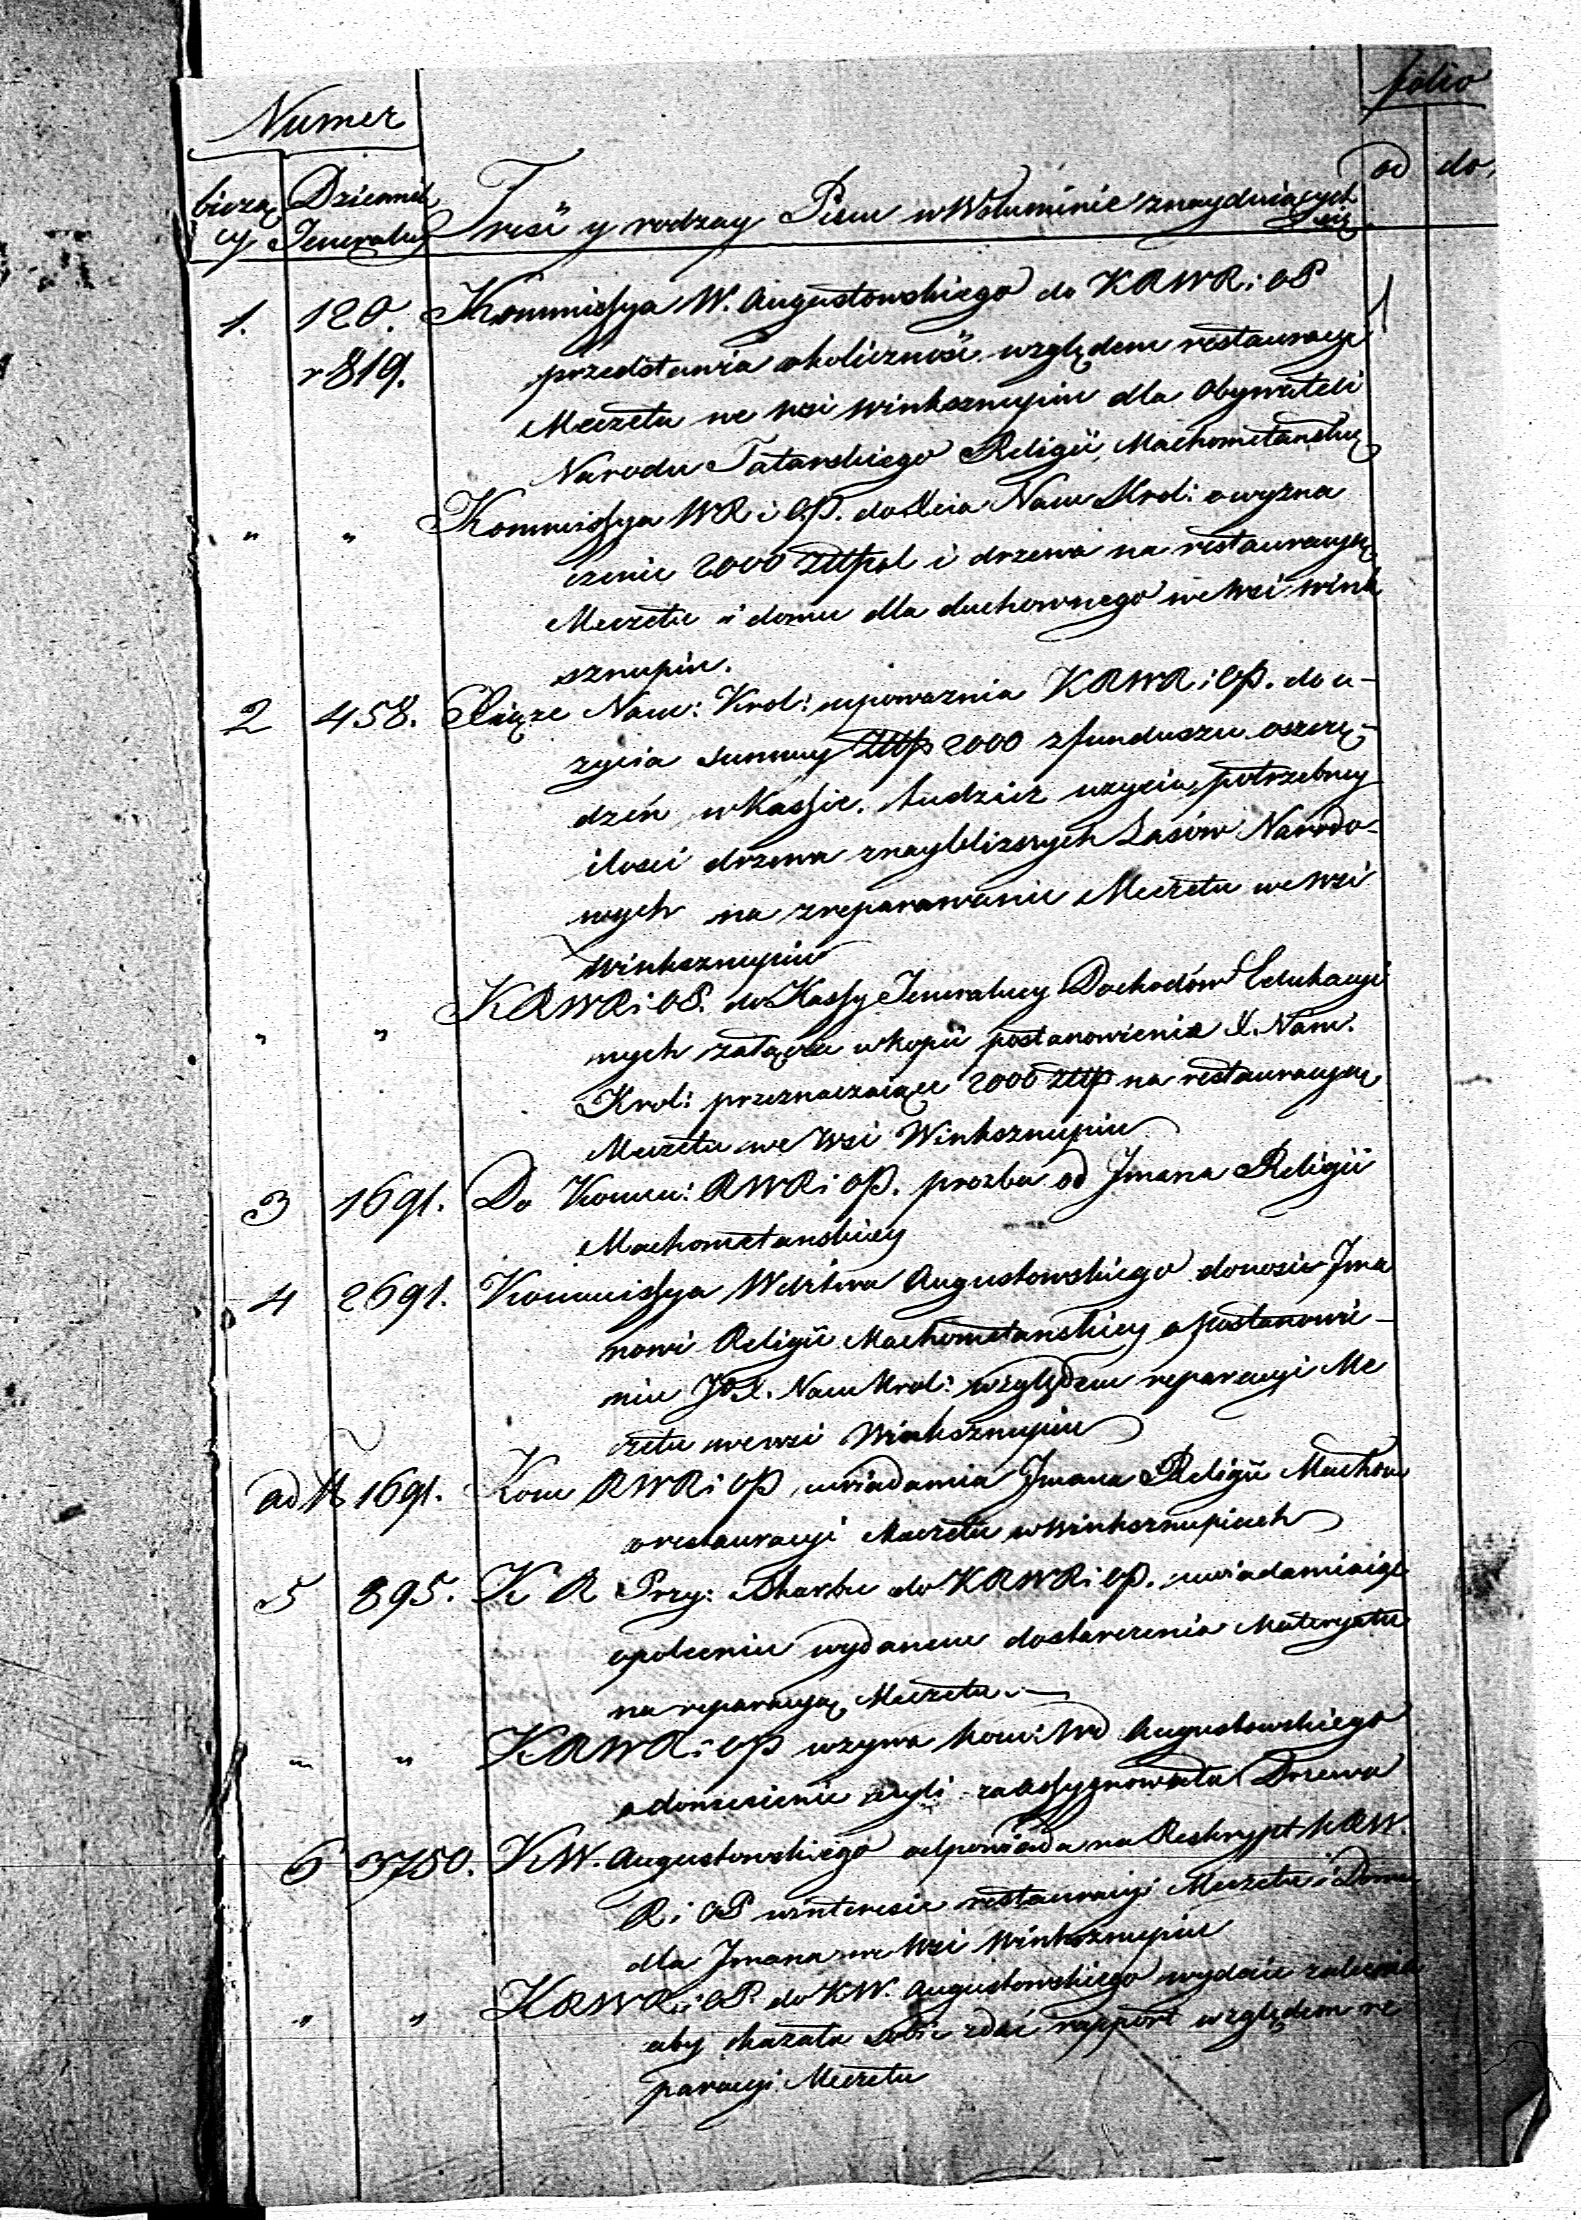 Numer
folio
bieżą Dziennik Treść y rodzay Pism w Woluminie znayduiących od do.
cy Jeneralny się
1. 120. Kommissya W. Augustowskiego do KRWR i OP 1
r 819. przedstawia okoliczność względem restauracyi
Meczetu we wsi Winksznupiu dla Obywateli
Narodu Tatarskiego Religii Machometańskiey
" " Kommissya WR i OP. do Xcia Nam Krol: o wyzna
czenie 2000 złlpol i drzewa na restauracyą
Meczetu i domu dla duchownego we wsi Wink
sznupiu.
2 458. Xiąże Nam: Krol: upoważnia KRWR i OP. do u-
życia summy złlp 2000 z funduszu oszczę-
dzeń w Kassie. tudzież użycia potrzebney
ilości drzewa z naybliższych Lasów Narodo-
wych na zreparowanie Meczetu we wsi
Winksznupiu
" " KRWR i OP. do Kassy Jeneralney Dochodów Edukacyi
nych załącza w kopii postanowienie X. Nam.
Krol: przeznaczaiące 2000 złlp na restauracyą
Meczetu we Wsi Winksznupiu
3 1691. Do Komm: RWR i OP. prozba od Jmana Religii
Machometanskiey
4 2691. Kommissya Wdztwa Augustowskiego donosi Jma
nowi Religii Machometanskiey o postanowie-
niu JOX. Nam Krol: względem reparacyi Me
czetu we wsi Winksznupiu
ad 4 1691. Kom RWR i OP uwiadamia Jmana Religii Machom
o restauracyi Meczetu w Winksznupiach
5 895. K R Przy: Skarbu do KRWR i OP. uwiadamiaiąc
o poleceniu wydanem dostarczenia Materyału
na reparacyą Meczetu.—
" " KRWR i OP wzywa Kom: Wd Augustowskiego
o doniesienie czyli zaassygnowała Drzewo
6 3750. KW. Augustowskiego odpowiada na Reskrypt KRW.
R i OP w interesie restauracyi Meczetu i Domu
dla Jmana we Wsi Winksznupiu
" " KRWR i OP. do KW. Augustowskiego wydaie zalecenie
aby kazała sobie zdać rapport względem re
paracyi Meczetu